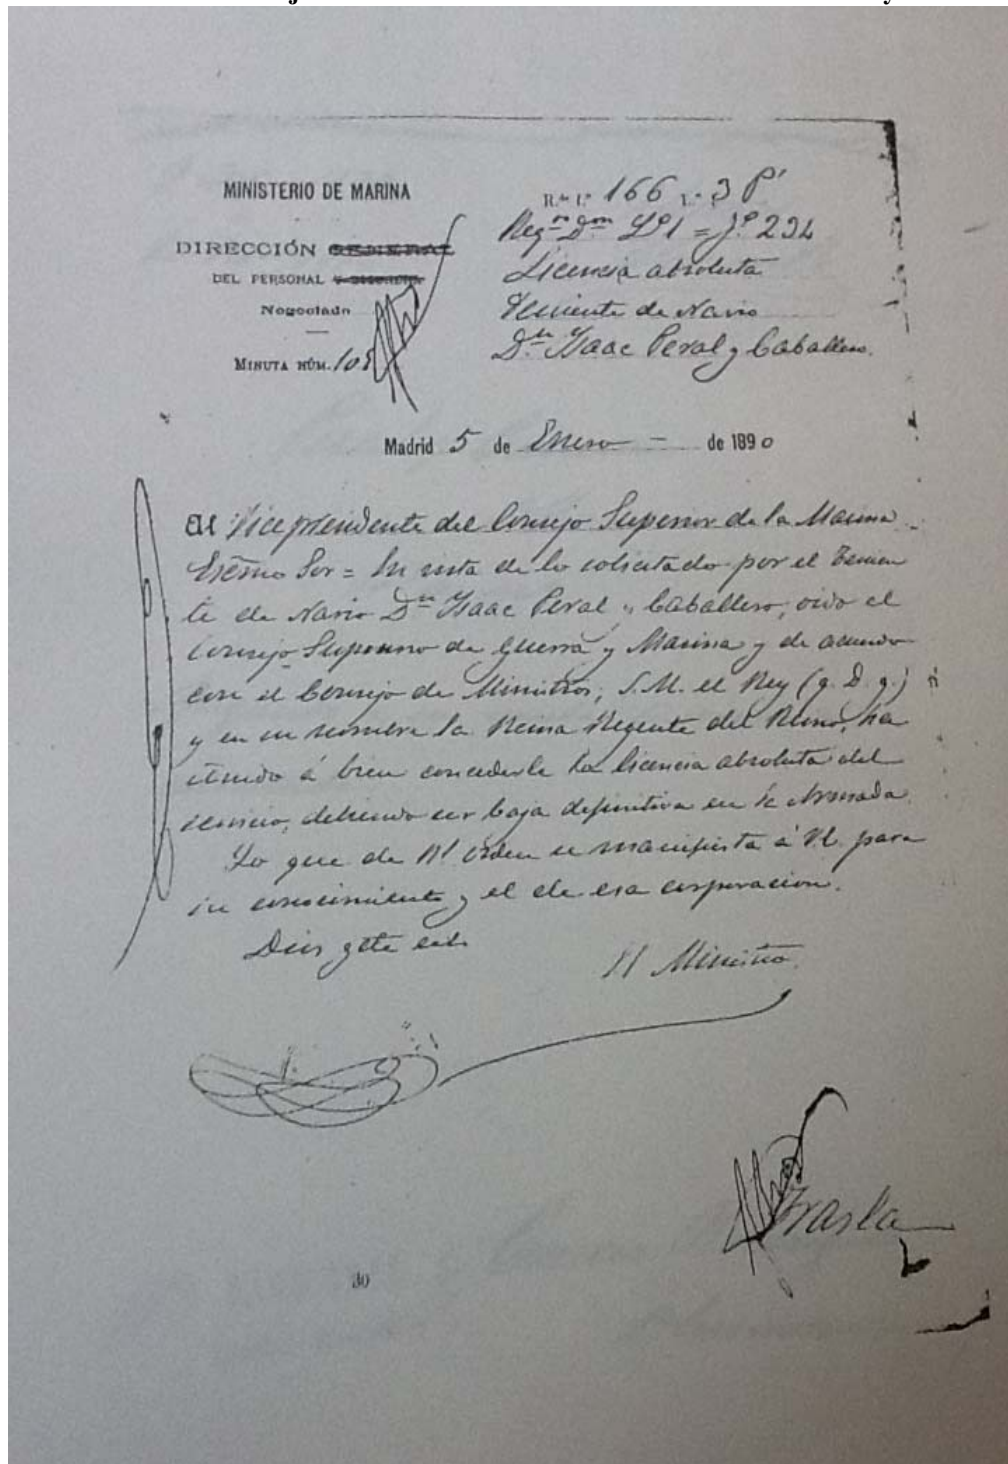 MINISTERIO DE MARINA
DIRECCIÓN GENERAL
DEL PERSONAL
Negociado
MINUTA NÚM. 105
166 L. 3 Pº
Regⁿ Dᵒⁿ Lº1 = fº 232
Licencia absoluta
Teniente de Navio
Dⁿ Isaac Peral y Caballero.
Madrid 5 de Enero de 1890
Al Vicepresidente del Consejo Superior de la Marina
Excmo Sor = En vista de lo solicitado por el Tenien
te de Navio Dⁿ Isaac Peral y Caballero, oido el
Consejo Supremo de Guerra y Marina y de acuerdo
con el Consejo de Ministros, S.M. el Rey (q. D. g.)
y en su nombre la Reina Regente del Reino, ha
tenido á bien concederle la licencia absoluta del
servicio, debiendo ser baja definitiva en la Armada.
Lo que de Rl orden se manifiesta á VE. para
su conocimiento y el de esa corporacion.
Dios gue etc
El Ministro.
Trasla
30